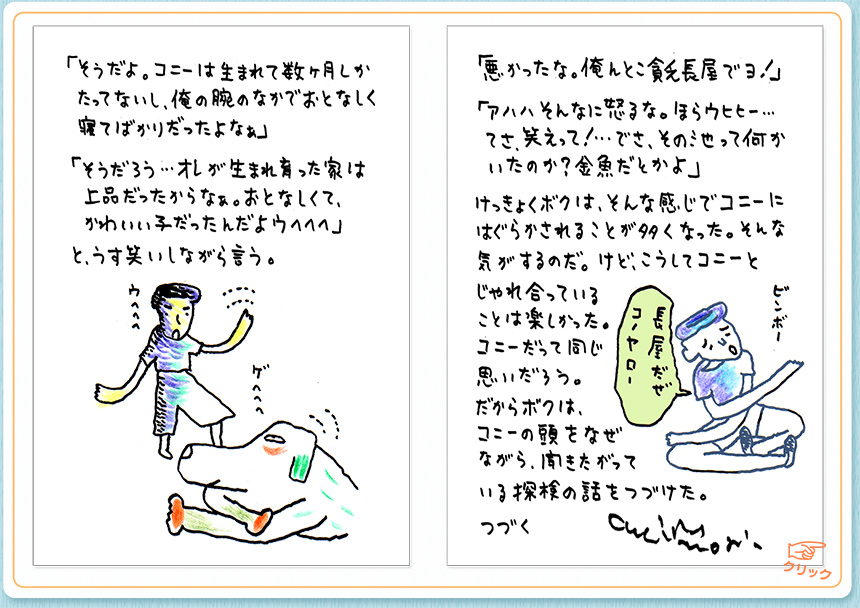 「そうだよ。コニーは生まれて数ヶ月しか
たってないし、俺の腕のなかでおとなしく
寝てばかりだったよなぁ」
「そうだろう…オレが生まれ育った家は
上品だったからなぁ。おとなしくて、
かわいい子だったんだよウヘヘヘ」
と、うす笑いしながら言う。
ウヘヘヘ
ゲヘヘヘ
「悪かったな。俺んとこ貧乏長屋でヨ!」
「アハハそんなに怒るな。ほらウヒヒー…
てさ、笑えって!…でさ、その池って何か
いたのか?金魚だとかよ」
けっきょくボクは、そんな感じでコニーに
はぐらかされることが多くなった。そんな
気がするのだ。けど、こうしてコニーと
じゃれ合っている
ことは楽しかった。
コニーだって同じ
思いだろう。
だからボクは、
コニーの頭をなぜ
ながら、聞きたがって
いる探検の話をつづけた。
つづく
長屋だぜ
コノヤロー
ビンボー
クリック